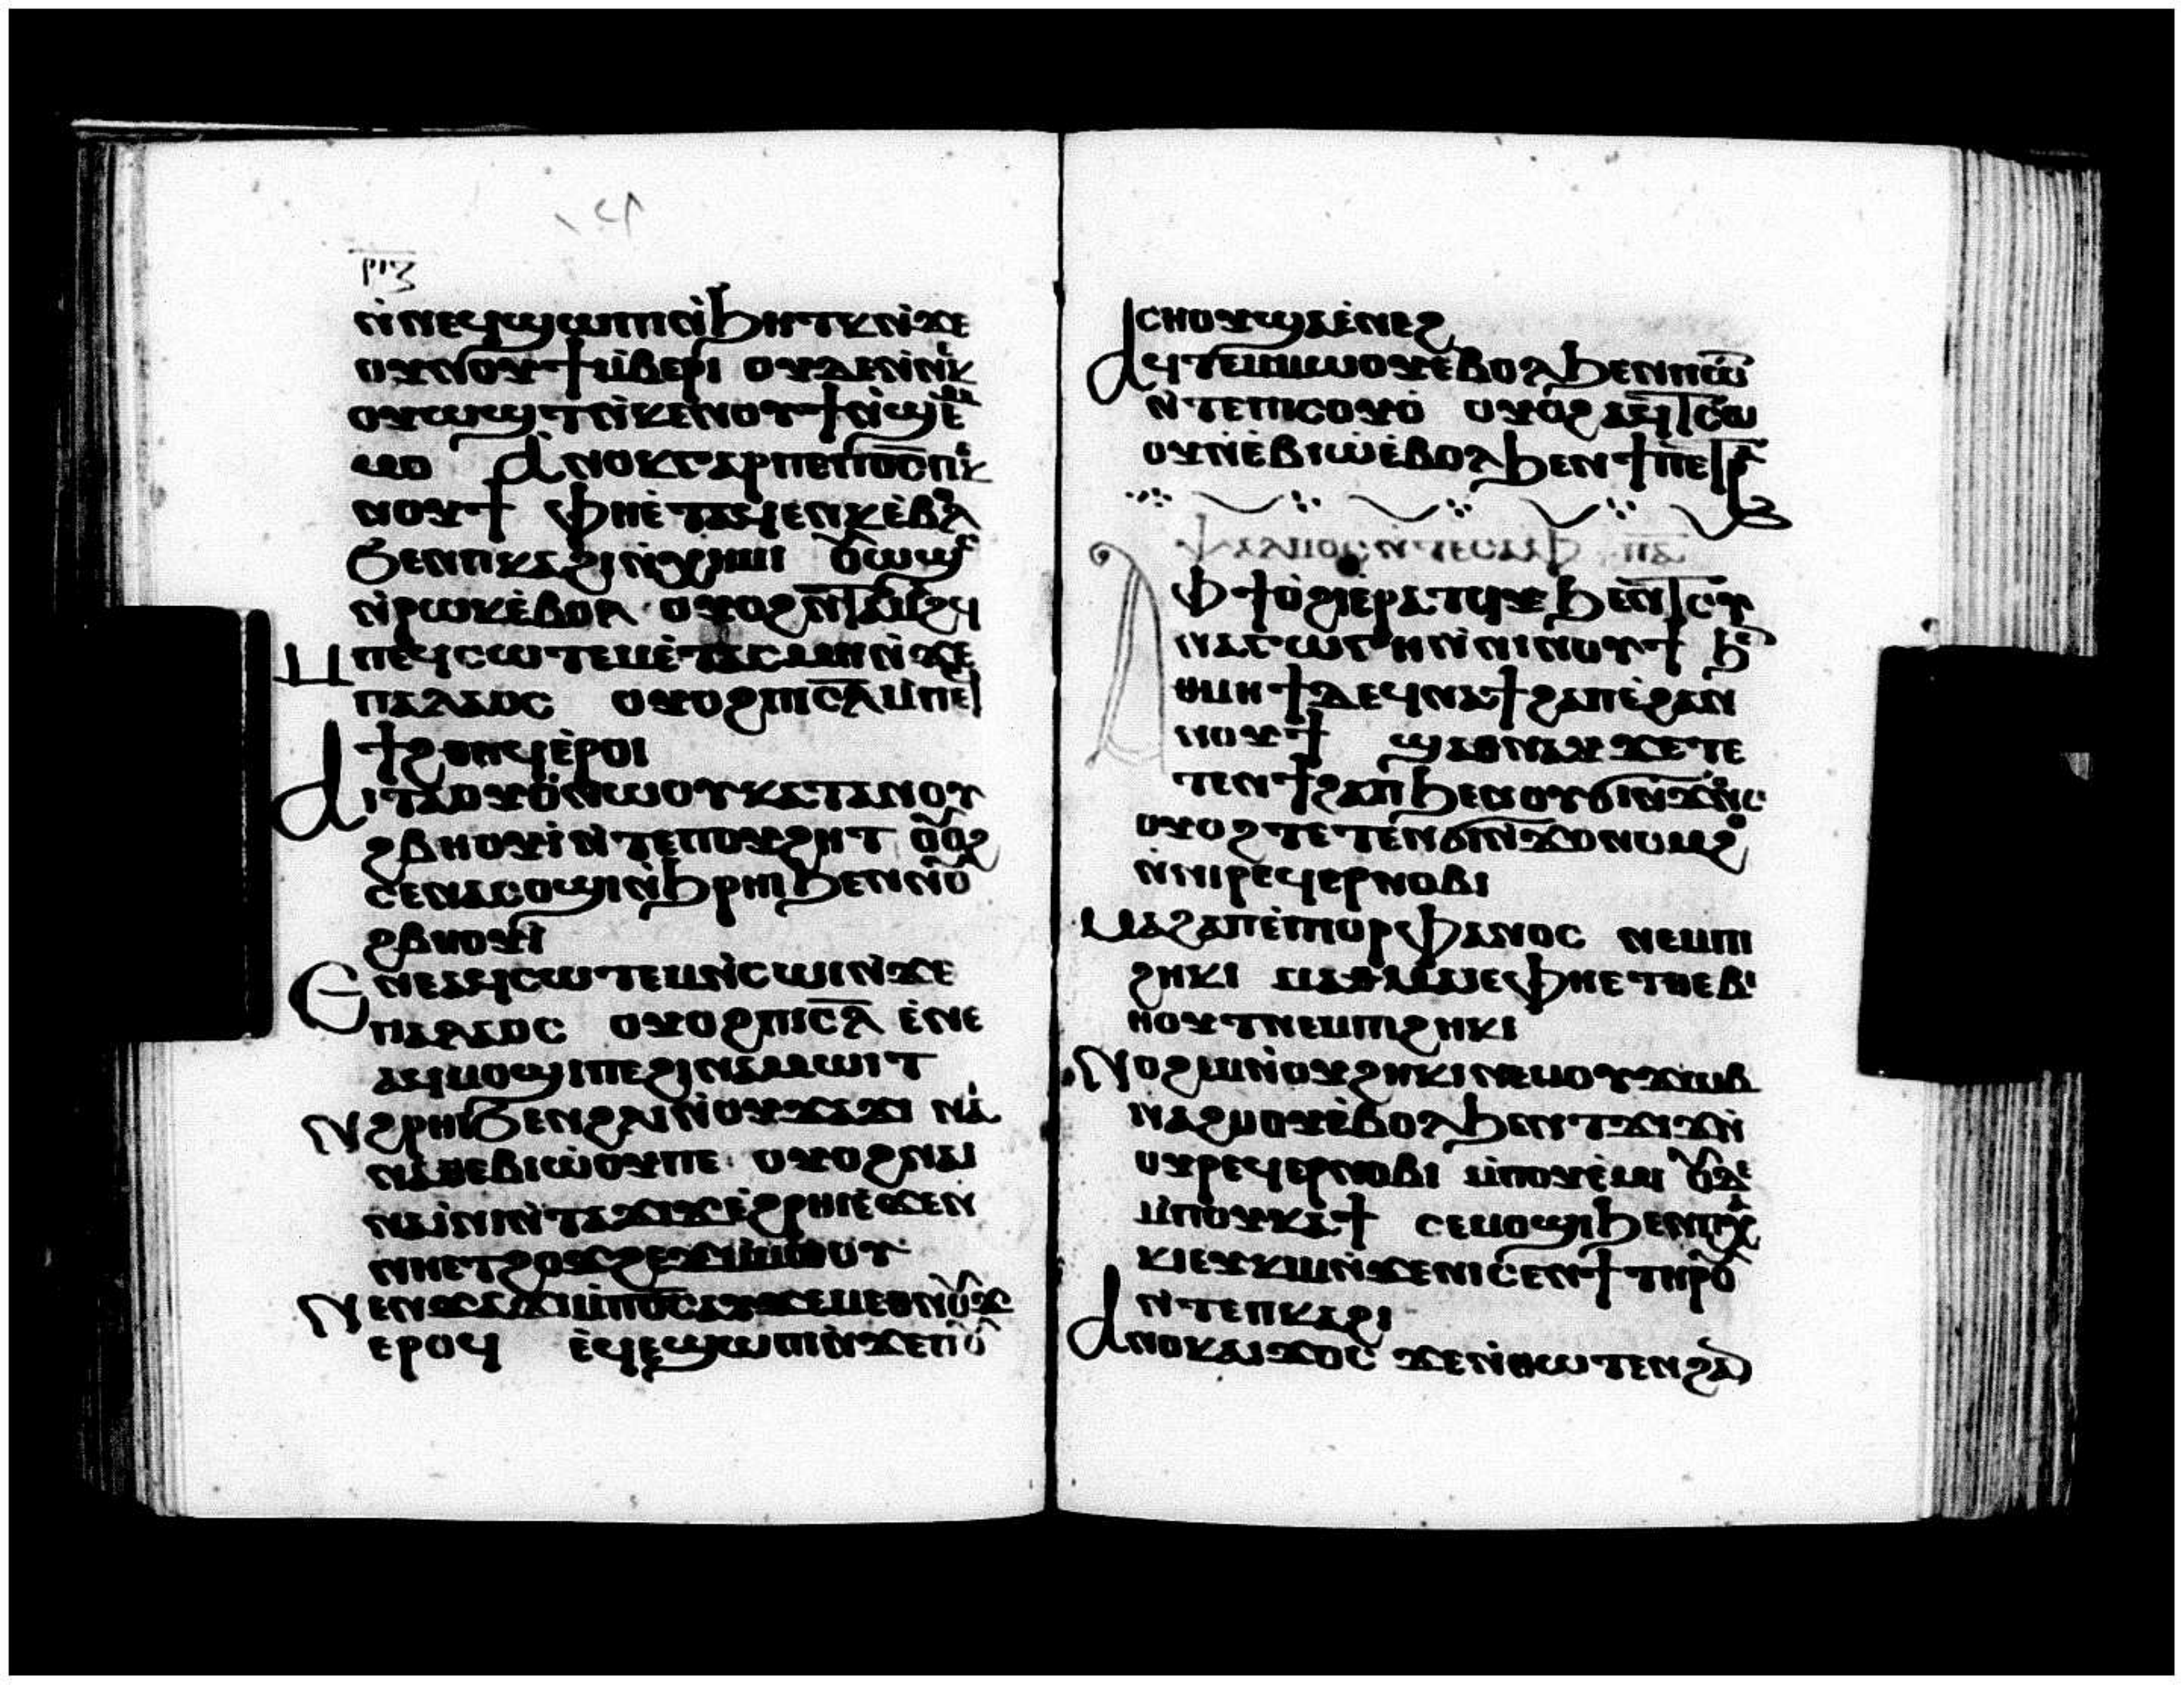 ⲣⲓⲍ
ⲛ̀ⲛⲉϥϣⲱⲡⲓ ⲛ̀ϧⲏⲧⲕ ⲛ̀ϫⲉ
ⲟⲩⲛⲟⲩϯ ⲙ̀ⲃⲉⲣⲓ ⲟⲩⲇⲉ ⲛ̀ⲛⲉⲕ
ⲟⲩⲱϣⲧ ⲛ̀ⲕⲉⲛⲟⲩϯ ⲛ̀ϣⲉⲙ
ⲙⲟ ⲁⲛⲟⲕ ⲅⲁⲣ ⲡⲉ ⲡ⳪ ⲡⲉⲕ
ⲛⲟⲩϯ ⲫⲏⲉ̀ⲧⲁϥⲉⲛⲕ ⲉ̀ⲃⲟⲗ
ϧⲉⲛ ⲡⲕⲁϩⲓ ⲛ̀ⲭⲏⲙⲓ ⲟⲩⲱϣⲥ
ⲛ̀ⲣⲱⲕ ⲉ̀ⲃⲟⲗ ⲟⲩⲟϩ ⲛ̀ⲧⲁⲙⲁϩϥ
ⲙⲡⲉϥⲥⲱⲧⲉⲙ ⲉ̀ⲧⲁⲥⲙⲏ ⲛ̀ϫⲉ
ⲡⲁⲗⲁⲟⲥ ⲟⲩⲟϩ ⲡⲓⲥ̅ⲗ̅ ⲙ̀ⲡⲉϥ
ϯϩⲑⲏϥ ⲉ̀ⲣⲟⲓ
ⲁⲓⲧⲁⲟⲩⲟ̀ ⲛⲱⲟⲩ ⲕⲁⲧⲁ ⲛⲟⲩ
ϩⲃⲏⲟⲩⲓ̀ ⲛ̀ⲧⲉ ⲡⲟⲩϩⲏⲧ ⲟⲩⲟϩ
ⲥⲉⲛⲁⲙⲟϣⲓ ⲛ̀ϧⲣⲏⲓ ϧⲉⲛ ⲛⲟⲩ
ϩⲃⲏⲟⲩⲓ̀
ⲉⲛⲉ ⲁϥⲥⲱⲧⲉⲙ ⲛ̀ⲥⲱⲓ ⲛ̀ϫⲉ
ⲡⲁⲗⲁⲟⲥ ⲟⲩⲟϩ ⲡⲓⲥ̅ⲗ̅ ⲉ̀ⲛⲉ
ⲁϥⲙⲟϣⲓ ⲡⲉ ϩⲓ ⲛⲁⲙⲱⲓⲧ
ⲛϩⲣⲏⲓ ϧⲉⲛ ϩⲗⲓ ⲛⲟⲩϫⲁϫⲓ ⲛⲁⲓ
ⲛⲁⲑⲉⲃⲓⲱ̀ⲟⲩ ⲡⲉ ⲟⲩⲟϩ ⲛⲁⲓ
ⲛⲁⲓ̀ⲛⲓ ⲛ̀ⲧⲁϫⲓϫ ⲉ̀ϩⲣⲏⲓ ⲉ̀ϫⲉⲛ
ⲛⲏⲉⲧϩⲟϫϩⲉϫ ⲙ̀ⲙⲱⲟⲩ
ⲛⲉⲛϫⲁϫⲓ ⲙ̀ⲡ⳪ ⲁⲩϫⲉⲙⲉⲑⲛⲟⲩϫ
ⲉⲣⲟϥ ⲉ̀ϥⲉϣⲱⲡⲓ ⲛ̀ϫⲉ ⲡⲟⲩ
ⲥⲏⲟⲩ ϣⲁ ⲉ̀ⲛⲉϩ
ⲁϥⲧⲉⲙⲙⲱⲟⲩ ⲉ̀ⲃⲟⲗ ϧⲉⲛ ⲡⲱⲧ
ⲛ̀ⲧⲉ ⲡⲓⲥⲟⲩⲟ̀ ⲟⲩⲟϩ ⲁϥⲧⲥⲱ
ⲟⲩ ⲛ̀ⲉⲃⲓⲱ̀ ⲉ̀ⲃⲟⲗ ϧⲉⲛ ϯⲡⲉⲧⲣⲁ
ⲯⲁⲗⲙⲟⲥ ⲛ̀ⲧⲉ ⲁⲥⲁⲫ ⲡ̅ⲁ̅
ⲁⲫϯ ⲟ̀ϩⲓ ⲉ̀ⲣⲁⲧϥ ϧⲉⲛ ⲧⲥⲩ
ⲛⲁⲅⲱⲅⲏ ⲛ̀ⲛⲓⲛⲟⲩϯ ϧⲉⲛ
ⲑⲙⲏϯ ⲇⲉ ϥⲛⲁϯϩⲁⲡ ⲉ̀ϩⲁⲛ
ⲛⲟⲩϯ ϣⲁ ⲑⲛⲁⲩ ϫⲉ ⲧⲉ
ⲧⲉⲛϯϩⲁⲡ ϧⲉⲛ ⲟⲩϭⲓⲛϫⲟⲛⲥ
ⲟⲩⲟϩ ⲧⲉⲧⲉⲛϭⲓ ⲛ̀ϫⲟⲛⲟⲩⲙⲟϩ
ⲛ̀ⲛⲓⲣⲉϥⲉⲣⲛⲟⲃⲓ
ⲙⲁϩⲁⲡ ⲉ̀ⲡⲓⲟⲣⲫⲁⲛⲟⲥ ⲛⲉⲙ ⲡⲓ
ϩⲏⲕⲓ ⲙⲁⲑⲙⲁⲓⲉ ⲫⲏⲉⲧⲑⲉⲃⲓ
ⲏⲟⲩⲧ ⲛⲉⲙ ⲡⲓϩⲏⲕⲓ
ⲛⲟϩⲉⲙ ⲛ̀ⲟⲩϩⲏⲕⲓ ⲛⲉⲙ ⲟⲩϫⲱⲃ
ⲛⲁϩⲙⲟⲩ ⲉ̀ⲃⲟⲗ ϧⲉⲛ ⲧϫⲓϫ ⲛ̀
ⲟⲩⲣⲉϥⲉⲣⲛⲟⲃⲓ ⲙ̀ⲡⲟⲩⲉ̀ⲙⲓ ⲟⲩⲇⲉ
ⲙ̀ⲡⲟⲩⲕⲁϯ ⲥⲉⲙⲟϣⲓ ϧⲉⲛ ⲡⲭⲁ
ⲕⲓ ⲉⲩⲕⲓⲙ ⲛ̀ϫⲉ ⲛⲓⲥⲉⲛϯ ⲧⲏⲣⲟⲩ
ⲛ̀ⲧⲉ ⲡⲕⲁϩⲓ
ⲁⲛⲟⲕ ⲁⲓϫⲟⲥ ϫⲉ ⲛ̀ⲑⲱⲧⲉⲛ ϩⲁⲛ